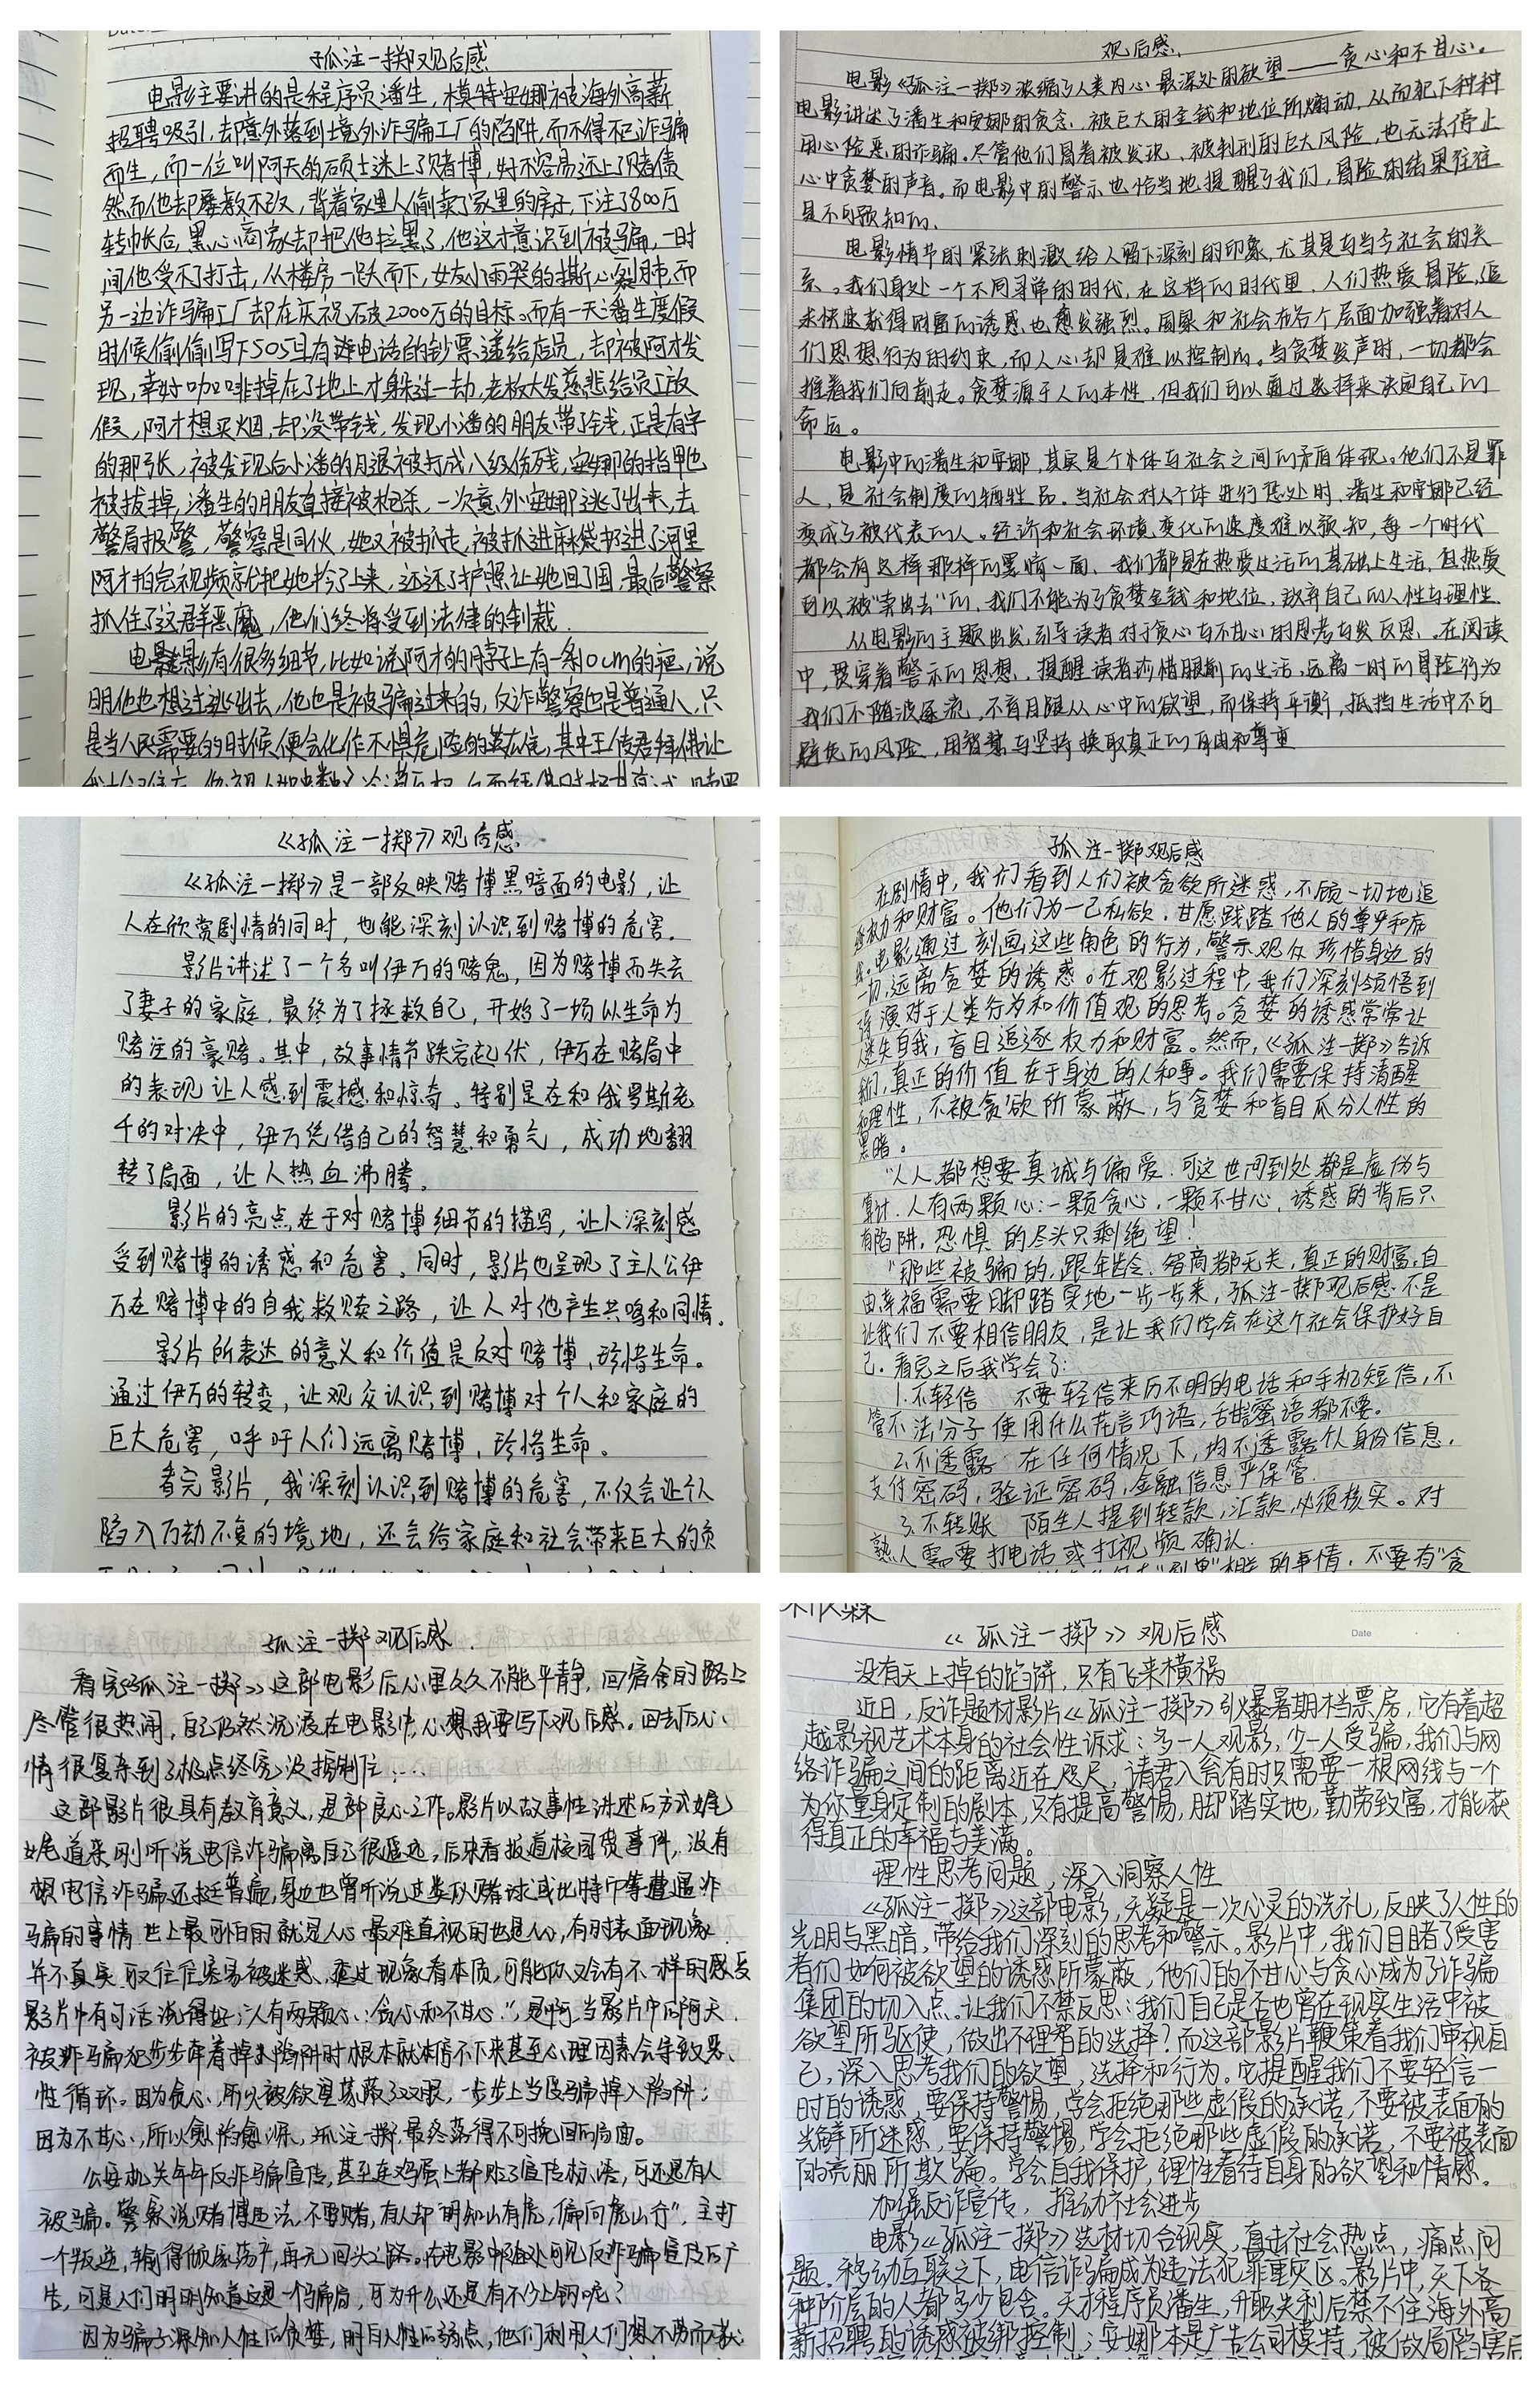 孤注一掷观后感
电影主要讲的是程序员潘生，模特安娜被海外高薪
招聘吸引，却意外落到境外诈骗工厂的陷阱，而不得不已诈骗
而生，而一位叫阿天的硕士迷上了赌博，好不容易还上了赌债
然而他却屡教不改，背着家里人偷卖了家里的房子，下注了800万
转帐后，黑心商家却把他拉黑了，他这才意识到被骗，一时
间他受不了打击，从楼房一跃而下，女友小雨哭的撕心裂肺，而
另一边诈骗工厂却在庆祝破2000万的目标。而有一天潘生度假
时候偷偷写下SOS且有进电话的钞票递给店员，却被阿才发
现，幸好咖啡掉在了地上才躲过一劫，老板大发慈悲给员工放
假，阿才想买烟，却没带钱，发现小潘的朋友带了钱，正是有字
的那张，被发现后小潘的月退被打成八级伤残，安娜的指甲也
被拔掉，潘生的朋友直接被枪杀，一次意外安娜逃了出来，去
警局报警，警察是同伙，她又被抓走，被抓进麻袋扔进了河里
阿才拍完视频就把她拎了上来，还还了护照让她回了国，最后警察
抓住了这群恶魔，他们终将受到法律的制裁.
电影有很多细节，比如说阿才的脖子上有一条10cm的疤，说
明他也想过逃出去，他也是被骗过来的，反诈警察也是普通人，只
是当人民需要的时候便会化作不惧危险的英雄，其中王传君拜佛让
观后感
电影《孤注一掷》浓缩了人类内心最深处的欲望——贪心和不甘心。
电影讲述了潘生和安娜的贪念，被巨大的金钱和地位所煽动，从而犯下种种
用心险恶的诈骗。尽管他们冒着被发现、被判刑的巨大风险，也无法停止
心中贪婪的声音。而电影中的警示也恰当地提醒了我们，冒险的结果往往
是不可预知的、
电影情节的紧张刺激给人留下深刻的印象，尤其是与当今社会的关
系。我们身处一个不同寻常的时代，在这样的时代里，人们热爱冒险，追
求快速获得财富的诱惑也愈发强烈。国家和社会在各个层面加强着对人
们思想行为的约束，而人心却是难以控制的。当贪婪发声时，一切都会
推着我们向前走。贪婪源于人的本性，但我们可以通过选择来决定自己的
命运。
电影中的潘生和安娜，其实是个体与社会之间的矛盾体现。他们不是罪
人，是社会制度的牺牲品。当社会对个体进行惩处时，潘生和安娜已经
变成了被代表的人。经济和社会环境变化的速度难以预知，每一个时代
都会有这样那样的黑暗一面、我们都是在热爱生活的基础上生活，但热爱
可以被"卖出去"的，我们不能为了贪婪金钱和地位，放弃自己的人性与理性.
从电影的主题出发，引导读者对于贪心与不甘心的思考与发反思。在阅读
中，贯穿着警示的思想，提醒读者珍惜眼前的生活，远离一时的冒险行为
我们不随波逐流，不盲目跟从心中的欲望，而保持平衡，抵挡生活中不可
避免的风险，用智慧与坚持换取真正的自由和尊重
《孤注一掷》观后感
《孤注一掷》是一部反映赌博黑暗面的电影，让
人在欣赏剧情的同时，也能深刻认识到赌博的危害.
影片讲述了一个名叫伊万的赌鬼，因为赌博而失去
了妻子的家庭，最终为了拯救自己，开始了一场以生命为
赌注的豪赌。其中，故事情节跌宕起伏，伊万在赌局中
的表现让人感到震撼和惊奇。特别是在和俄罗斯老
千的对决中，伊万凭借自己的智慧和勇气，成功地翻
转了局面，让人热血沸腾。
影片的亮点在于对赌博细节的描写，让人深刻感
受到赌博的诱惑和危害。同时，影片也呈现了主人公伊
万在赌博中的自我救赎之路，让人对他产生共鸣和同情。
影片所表达的意义和价值是反对赌博，珍惜生命。
通过伊万的转变，让观众认识到赌博对个人和家庭的
巨大危害，呼吁人们远离赌博，珍惜生命。
看完影片，我深刻认识到赌博的危害，不仅会让个人
陷入万劫不复的境地，还会给家庭和社会带来巨大的负
孤注一掷观后感
在剧情中，我们看到人们被贪欲所迷惑，不顾一切地追
逐权力和财富。他们为一己私欲，甘愿践踏他人的尊严和
电影通过刻画这些角色的行为，警示观众珍惜身边的
一切，远离贪婪的诱惑。在观影过程中，我们深刻领悟到
导演对于人类行为和价值观的思考。贪婪的诱惑常常让
迷失自我，盲目追逐权力和财富。然而，《孤注一掷》告诉
我们，真正的价值在于身边的人和事。我们需要保持清醒
和理性，不被贪欲所蒙蔽，与贪婪和盲目瓜分人性的
黑暗。
"人人都想要真诚与偏爱，可这世间到处都是虚伪与
算计.人有两颗心:一颗贪心，一颗不甘心，诱惑的背后只
有陷阱，恐惧的尽头只剩绝望！
"那些被骗的，跟年龄、智商都无关，真正的财富，自
由幸福需要脚踏实地一步一步来，孤注一掷观后感不是
让我们不要相信朋友，是让我们学会在这个社会保护好自
己.看完之后我学会了:
1.不轻信 不要轻信来历不明的电话和手机短信，不
管不法分子使用什么花言巧语，甜言蜜语都不要。
2.不透露 在任何情况下，均不透露个人身份信息，
支付密码，验证密码，金融信息严保管.
3.不转账 陌生人提到转款，汇款，必须核实。对
熟人需要打电话或打视频确认.
"刷单"相关的事情，不要有"贪
孤注一掷观后感.
看完《孤注一掷》这部电影后心里久久不能平静，回宿舍的路上
尽管很热闹，自己仍然沉浸在电影中，心想我要写下观后感。回去后心
情很复杂到了极点终究没控制住....
这部影片很具有教育意义，是部良心工作。影片以故事性讲述的方式娓
娓道来刚听说电信诈骗离自己很遥远，后来看报道校园贷事件，没有
想电信诈骗还挺普遍，身边也曾听说过类似赌球或比特币等遭遇诈
骗的事情世上最可怕的就是人心最难直视的也是人心，有时表面现象
并不真实 取往往容易被迷惑，透过现象看本质，可能你又会有不一样的感受
影片中有句话说得好:"人有两颗心:贪心和不甘心."，是啊，当影片中的阿天
被诈骗犯步步牵着掉入陷阱时根本就停不下来甚至心理因素会导致恶
性循环。因为贪心，所以被欲望蒙蔽了双眼，一步步上当受骗掉入陷阱；
因为不甘心，所以愈陷愈深，孤注一掷，最终落得不可挽回的局面。
公安机关年年反诈骗宣传，甚至连鸡蛋上都贴了宣传标语，可还是有人
被骗。警察说赌博违法，不要赌，有人却"明知山有虎，偏向虎山行"，主打
一个叛逆，输得倾家荡产，再无回头之路。在电影中随处可见反诈骗宣传的广
告，可是人们明明知道这是一个骗局，可为什么还是有不少上钩呢？
因为骗子深知人性的贪婪，明白人性的弱点，他们利用人们想不劳而获
《孤注一掷》观后感
Date
没有天上掉的馅饼，只有飞来横祸
近日，反诈题材影片《孤注一掷》引爆暑期档票房，它有着超
越影视艺术本身的社会性诉求：多一人观影，少一人受骗，我们与网
络诈骗之间的距离近在咫尺，请君入瓮有时只需要一根网线与一个
为你量身定制的剧本，只有提高警惕，脚踏实地，勤劳致富，才能获
得真正的幸福与美满。
理性思考问题，深入洞察人性
《孤注一掷》这部电影，无疑是一次心灵的洗礼，反映了人性的
光明与黑暗，带给我们深刻的思考和警示。影片中，我们目睹了受害
者们如何被欲望的诱惑所蒙蔽，他们的不甘心与贪心成为了诈骗
集团的切入点.让我们不禁反思：我们自己是否也曾在现实生活中被
欲望所驱使，做出不理智的选择？而这部影片鞭策着我们审视自
己，深入思考我们的欲望，选择和行为。它提醒我们不要轻信一
时的诱惑，要保持警惕，学会拒绝那些虚假的承诺，不要被表面的
光鲜所迷惑，要保持警惕，学会拒绝那些虚假的承诺，不要被表面
的亮丽所欺骗。学会自我保护，理性看待自身的欲望和情感。
加强反诈宣传，推动社会进步
电影《孤注一掷》选材切合现实，直击社会热点，痛点问
题，移动互联之下，电信诈骗成为违法犯罪重灾区。影片中，天下各
种阶层的人都多少包含。天才程序员潘生，升职失利后禁不住海外高
薪招聘的诱惑被绑控制；安娜本是广告公司模特，被做局陷害后